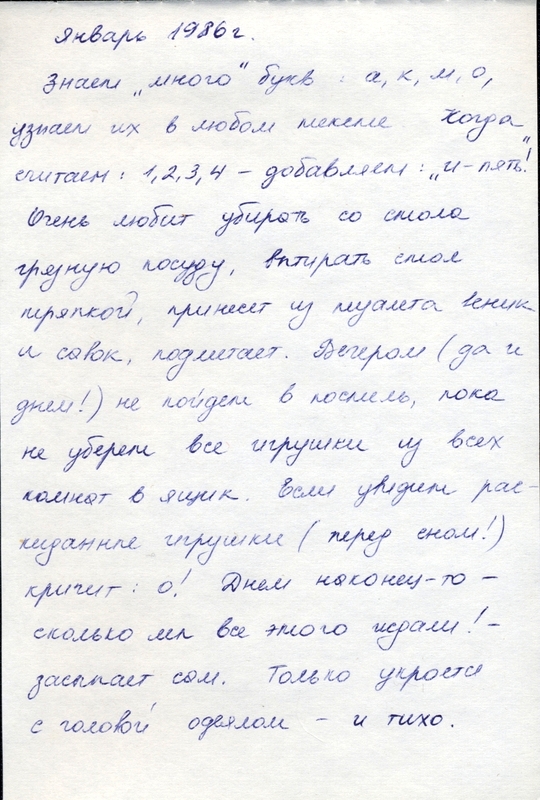 Январь 1986г.
Знаем „много" букв : а, к, м, о,
узнаем их в любом тексте Когда
считаем : 1, 2, 3, 4 – добавляем : „и – пять!"
Очень любит убирать со стола
грязную посуду, вытирать стол
тряпкой, принесет из туалета веник
и совок, подметает. Вечером (да и
днем!) не пойдет в постель, пока
не уберет все игрушки из всех
комнат в ящик. Если увидит рас-
киданные игрушки (перед сном!)
кричит : о! Днем наконец-то –
сколько мы все этого ждали! –
засыпает сам. Только укроется
с головой одеялом – и тихо.